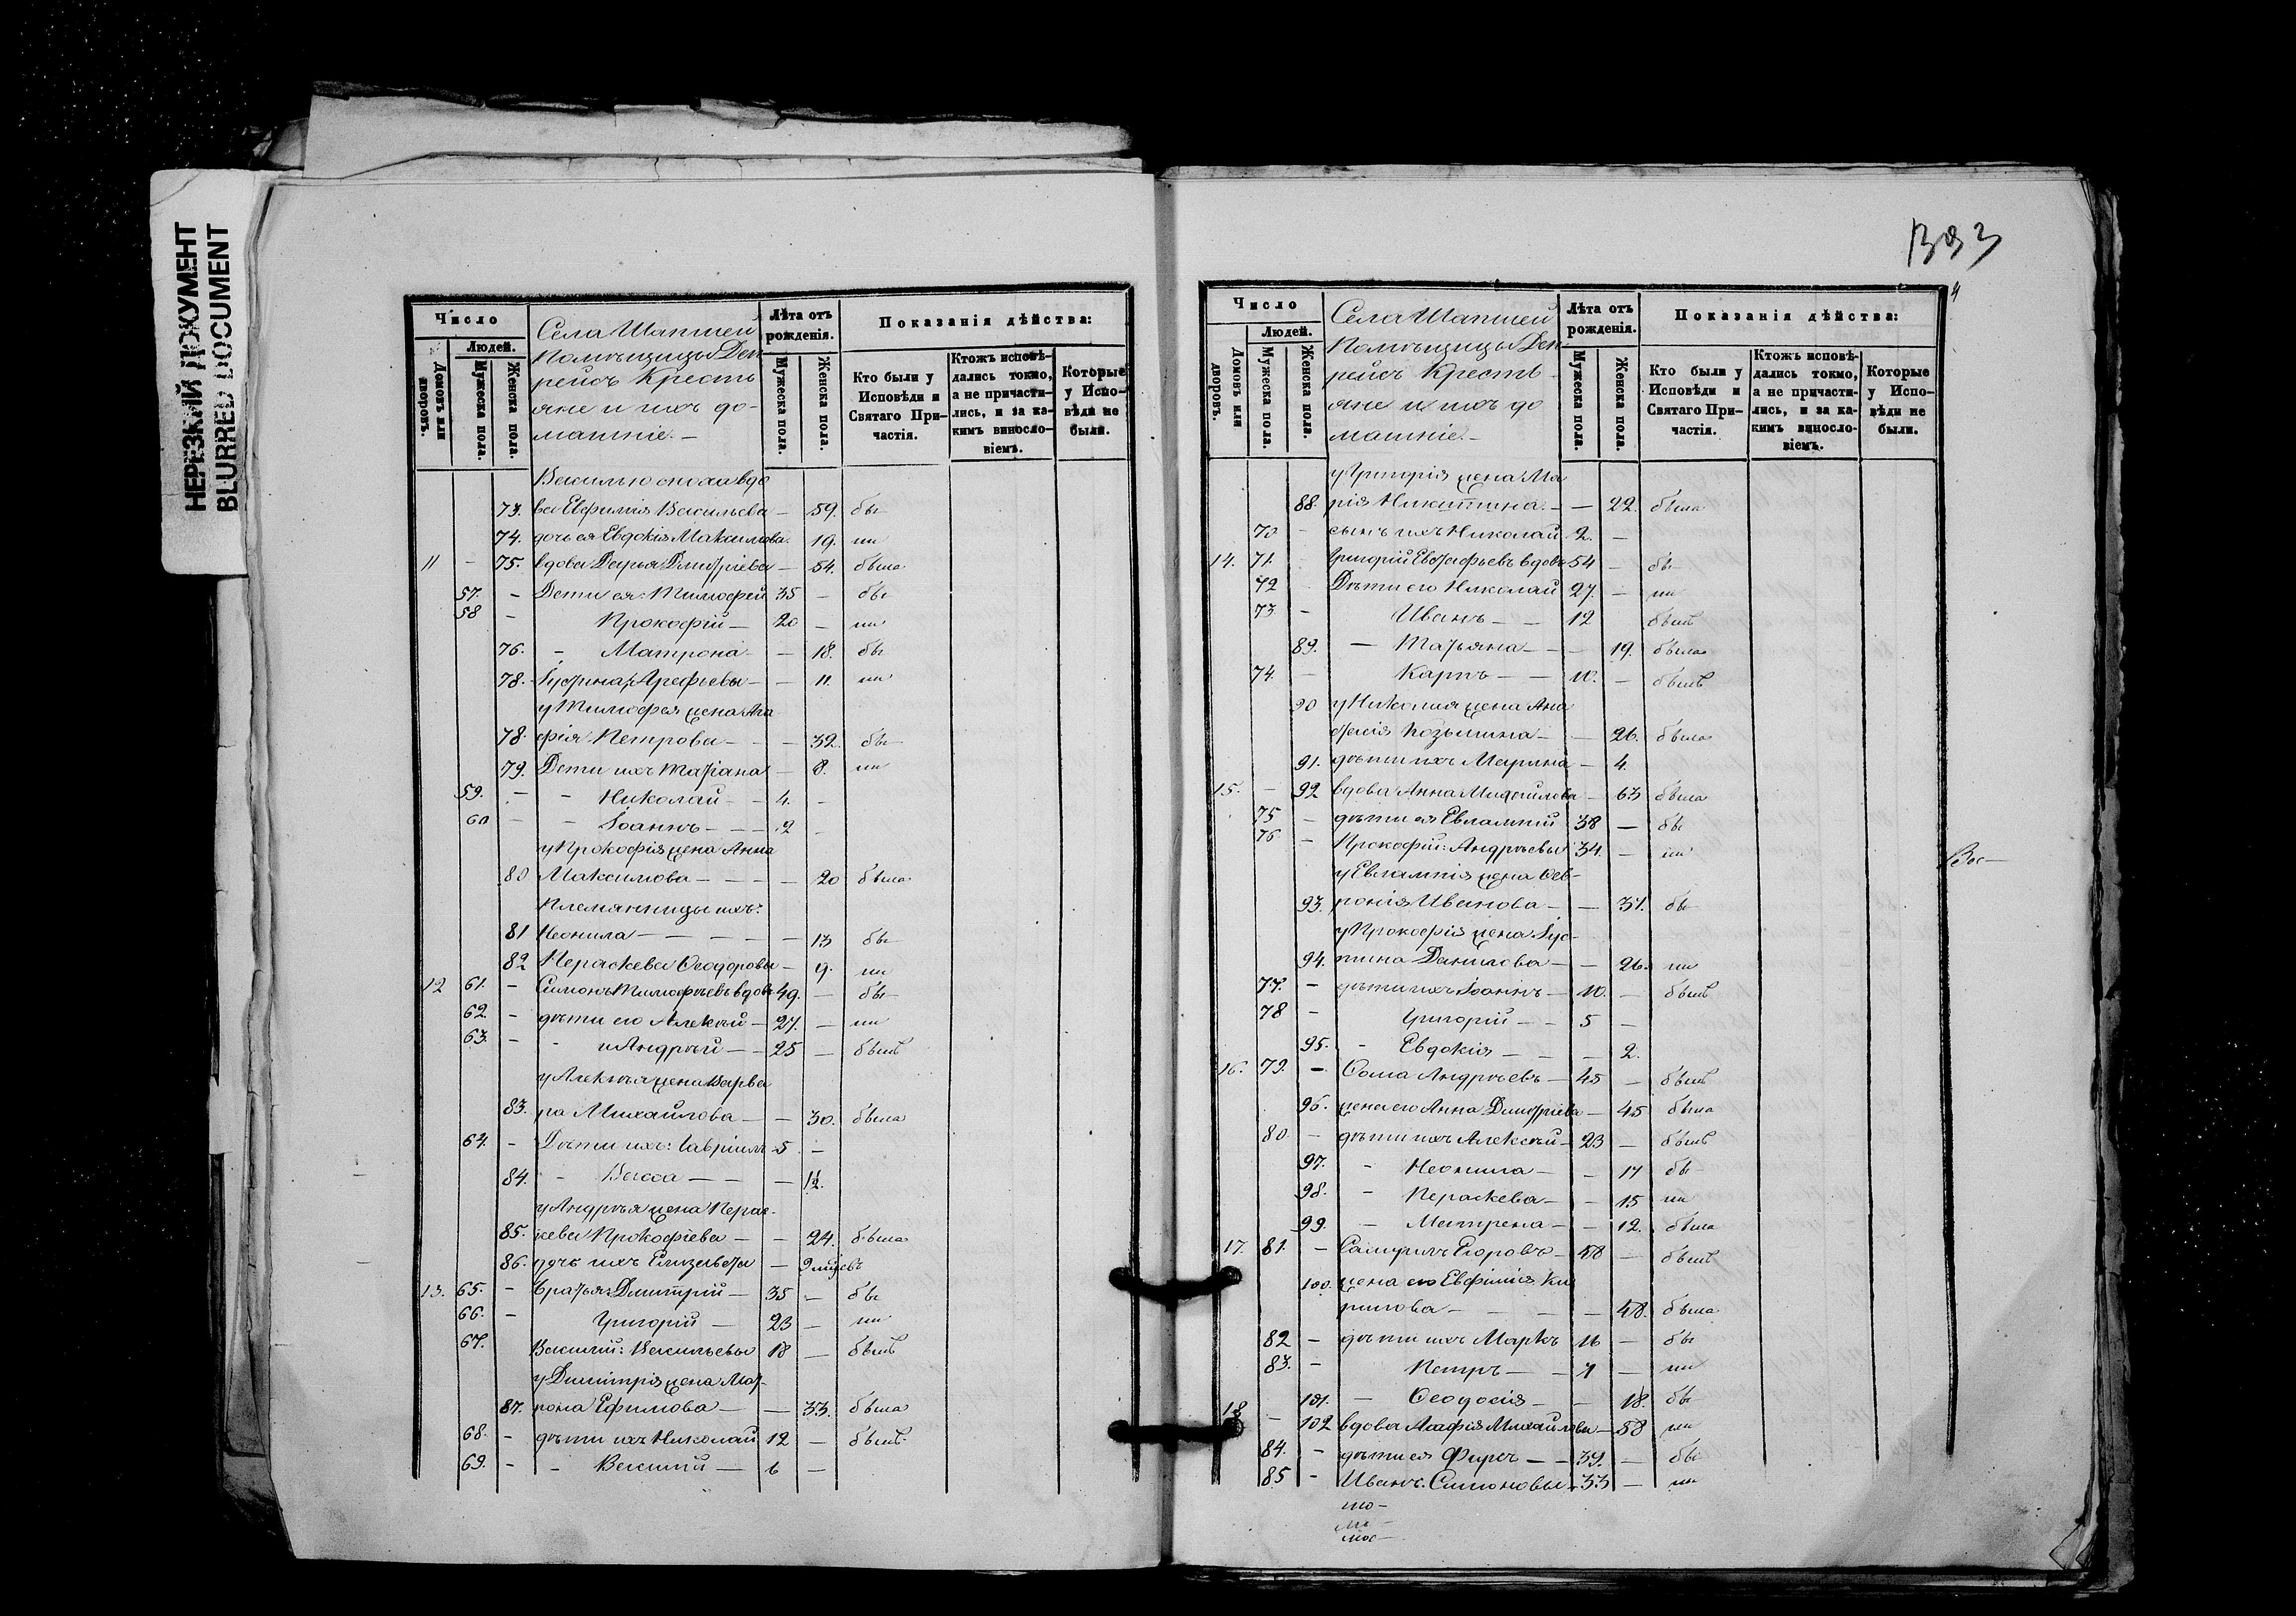 НЕРЕЗКИЙ ДОКУМЕНТ
BLURRED DOCUMENT
Число
Людей.
Домовъ или дворовъ.
Мужеска пола.
Женска пола.
Села Шапшей
Помѣщицы Ден
рейсъ Кресть
яне и ихъ до-
машніе.—
Лѣта отъ рожденія.
Мужеска пола.
Женска пола.
Показанія дѣйства:
Кто были у Исповѣди и Святаго При-частія.
Ктожъ исповѣ-дались токмо, а не причасти-лись, и за ка-кимъ винослo-віемъ.
Которые у Испо-вѣди не были.
73. ва Евфимія Васильева — 59. бы
74. дочь ея Евдокія Максимова 19. ли
11 - 75. вдова Дарья Димитріева — 54. была
57. - Дети ея: Тимофей 35 — бы
58 - Прокофій — 20 — ли
76. - Матрона — — 18. бы
78. Іустина: Арефьевы — — 11. ли
у Тимофея жена Ага
78. фія Петрова — — 32. бы
79. Дети ихъ Татіана — 8. ли
59. - - Николай — 4. -
60 - - Іоаннъ — — 2 -
у Прокофія жена Анна
80 Максимова — — — 20 была
Племянницы ихъ:
81 Неонила — — — — 13 бы
82 Параскева Ѳеодоровы — 9. ли
12 61. - Симонъ Тимофѣевъ вдовъ 49. — бы
62. - дѣти его Алексѣй — 27. — ли
63. - - и Андрѣй — 25 — былъ
у Алексѣя жена Варва
83. ра Михайлова — — 30. была
64. - Дѣти ихъ: Гавріилъ 5 —
84. - Васса — — — 1½.
у Андрѣя жена Парас-
85. кева Прокофіева — — 24. была
86. дочь ихъ Елизавета — 9 мѣсъ
13. 65. - Братья: Димитрій — 35 — бы
66. - Григорій — 23 — ли
67. Василій: Васильевы 18 — былъ
у Димитрія жена Мат-
87. рона Ефимова — — 33. была
68. - дѣти ихъ Николай 12 — былъ
69. - - Василій — 6 —
Число
Людей.
Домовъ или дворовъ.
Мужеска пола.
Женска пола.
Села Шапшей
Помѣщицы Ден
рейсъ Кресть-
яне и ихъ до
машніе.—
Лѣта отъ рожденія.
Мужеска пола.
Женска пола.
Показанія дѣйства:
Кто были у Исповѣди и Святаго При-частія.
Ктожъ исповѣ-дались токмо, а не причасти-лись, и за ка-кимъ винослo-віемъ.
Которые у Испо-вѣди не были.
у Григорія жена Ма
88. рія Никитина — — 22. была
70 - сынъ ихъ Николай 2. —
14. 71. Григорій Евстафьевъ вдовъ 54 — бы
72 Дѣти его Николай 27. — ли
73. - Иванъ — — 12 былъ
89. — Татьяна — — 19. была
74. - Карпъ — — 10. — былъ
90 у Николая жена Ана
стасія Козьмина — — 26. была
91. дѣти ихъ Марина — 4.
15. - 92 вдова Анна Михайлова — 63 была
75 - дѣти ея Евлампій 38 — бы
76 - Прокофій: Андрѣевы 34. — ли
у Евлампія жена Ѳев-
93. ронія Иванова — — 31. бы
у Прокофія жена Іус-
94. тина Данилова — — 26. ли
77. - дѣти ихъ Іоаннъ — 10. — былъ
78 - Григорій — — 5 —
95. - Евдокія — — — 2.
16. 79. — Ѳома Андрѣевъ — 45 — былъ
96. жена его Анна Димитріева — 45 была
80. - дѣти ихъ Алексѣй — 23 — былъ
97. - Неонила — — 17 бы
98. - Параскева — — 15 ли
99. - Матрена — — 12. была
17. 81. - Самуилъ Егоровъ — 48 — былъ
100. жена его Евфимія Ки
рилова — — — 48. была
82 - дѣти ихъ Маркъ 16 — бы
83. - Петръ — — 7 — ли
101. — Ѳеодосія — — 18. бы
18 - 102 вдова Агафія Михайлова — 58 ли
84. - дѣти ея Фирсъ — — 39. — бы
85 - Иванъ: Симоновы 33 — ли